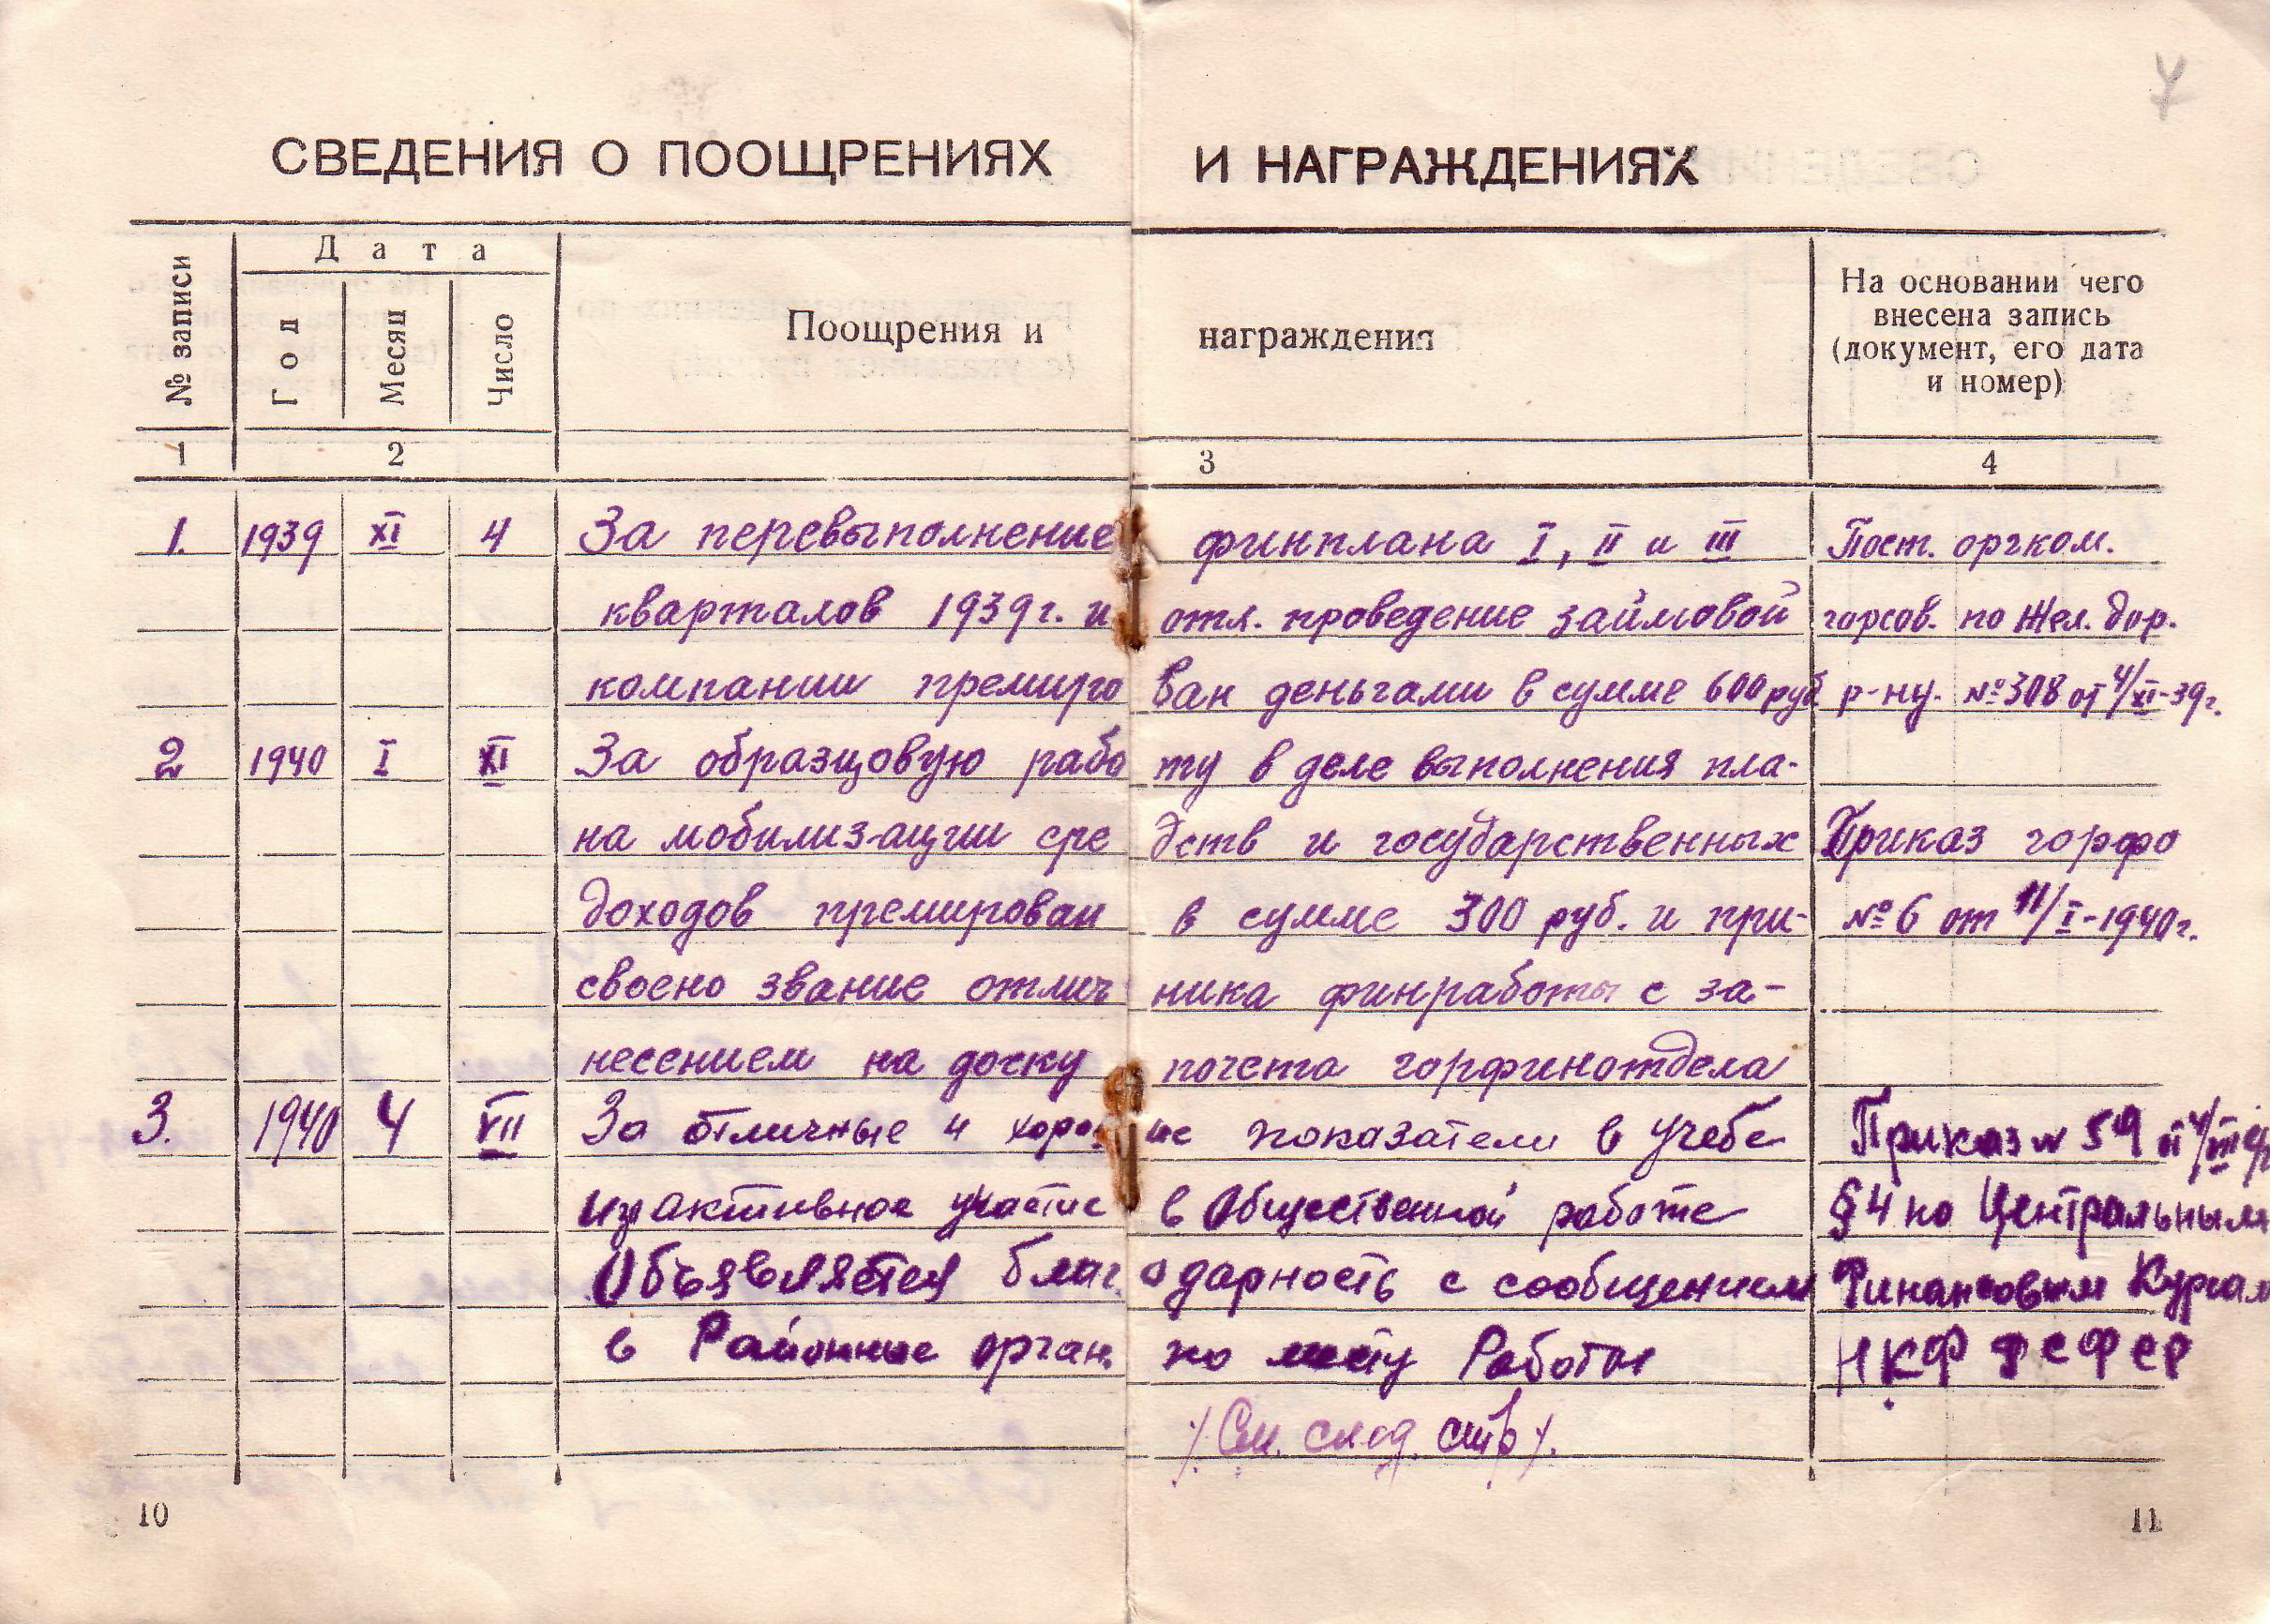 СВЕДЕНИЯ О ПООЩРЕНИЯХ И НАГРАЖДЕНИЯХ
№ записи
Дата
Год
Месяц
Число
Поощрения и награждения
На основании чего
внесена запись
(документ, его дата
и номер)
1 2 3 4
1. 1939 XI 4 За перевыполнение финплана I, II и III Пост. оргком.
кварталов 1939г. и отл. проведение займовой горсов. по Жел. дор.
компании премиро ван деньгами в сумме 600 руб р-ну. №308 от 4/XI-39г.
2 1940 I XI За образцовую рабо ту в деле выполнения пла-
на мобилизации сре дств и государственных Приказ горфо
доходов премирован в сумме 300 руб. и при- №6 от 11/I-1940г.
своено звание отлич ника финработы с за-
несением на доску почета горфинотдела
3. 1940 4 VII За отличные и хоро ие показатели в учебе Приказ N 59 4/VII
активное участие в Общественной работе §4 по Центральным
Объявляется благ одарность с сообщением Финансовым Курсам
в Районные орган по месту Работы НКФ РСФСР
/. См. след. стр /.
10
11